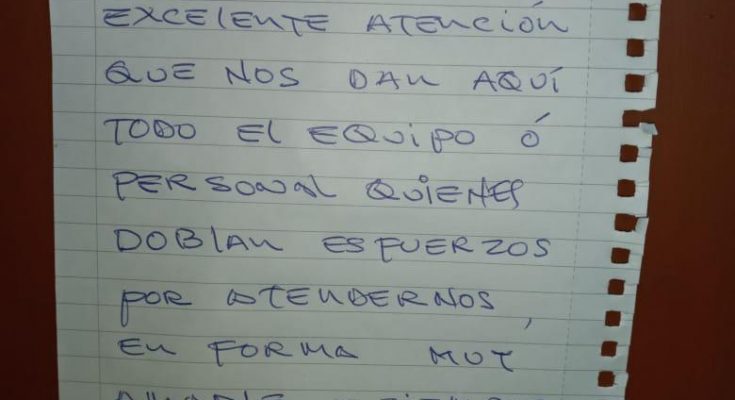 EXCELENTE ATENCIÓN
QUE NOS DAN AQUÍ
TODO EL EQUIPO Ó
PERSONAL QUIENES
DOBLAN ESFUERZOS
POR ATENDERNOS,
EN FORMA MUY